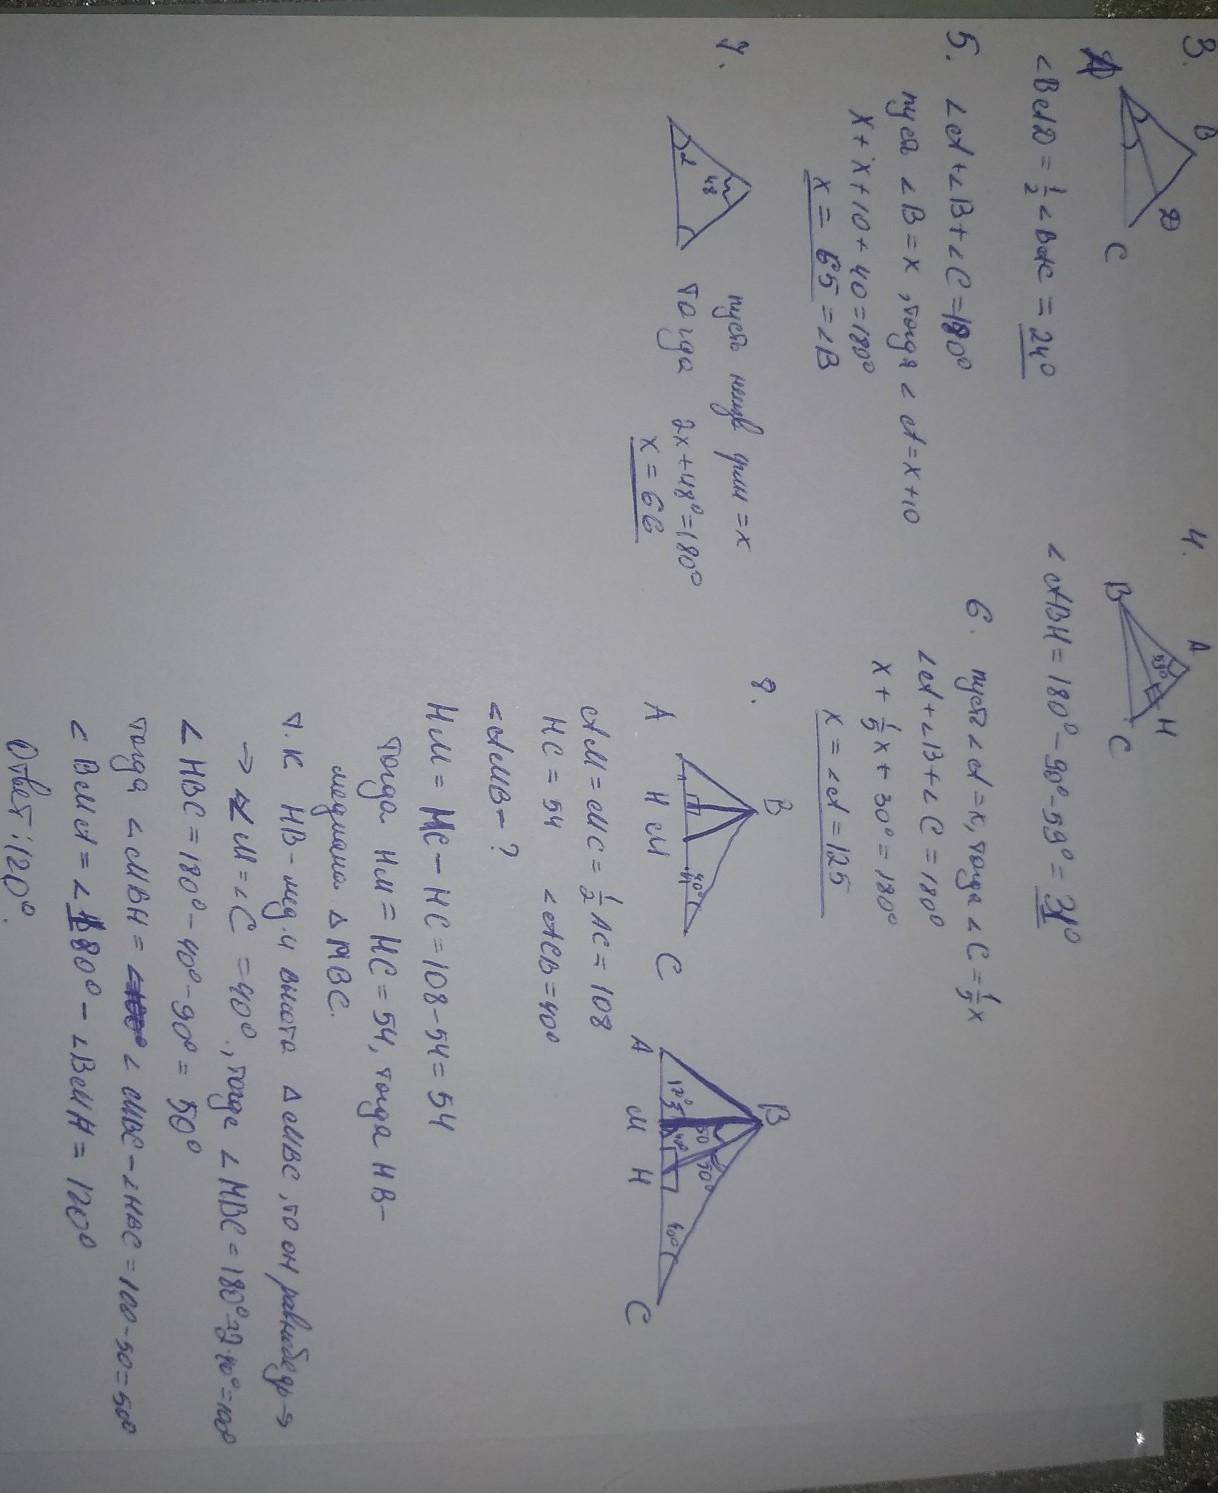 3.
B
D
C
∠BAD = 1/2 ∠BAC = 24°
4.
A
B
59°
H
C
∠ABH = 180° - 90° - 59° = 31°
5. ∠A + ∠B + ∠C = 180°
пусть ∠B = x, тогда ∠A = x + 10
x + x + 10 + 40 = 180°
x = 65 = ∠B
6. пусть ∠A = x, тогда ∠C = 1/5 x
∠A + ∠B + ∠C = 180°
x + 1/5 x + 30° = 180°
x = ∠A = 125
7.
48
пусть = x
тогда 2x + 48° = 180°
x = 66
8.
B
A H M C
40°
AM = MC = 1/2 AC = 108
HC = 54 ∠ACB = 40°
∠AMB - ?
B
A M H C
50 50°
40° 40°
HM = MC - HC = 108 - 54 = 54
Тогда HM = HC = 54, тогда HB -
медиана △MBC.
т.к HB - мед. и высота △MBC, то он равнобедр →
→ ∠M = ∠C = 40°, тогда ∠MBC = 180° - 2·40° = 100°
∠HBC = 180° - 40° - 90° = 50°
тогда ∠MBH = ∠MBC - ∠HBC = 100 - 50 = 50°
∠BMA = ∠180° - ∠BMH = 120°
Ответ: 120°.